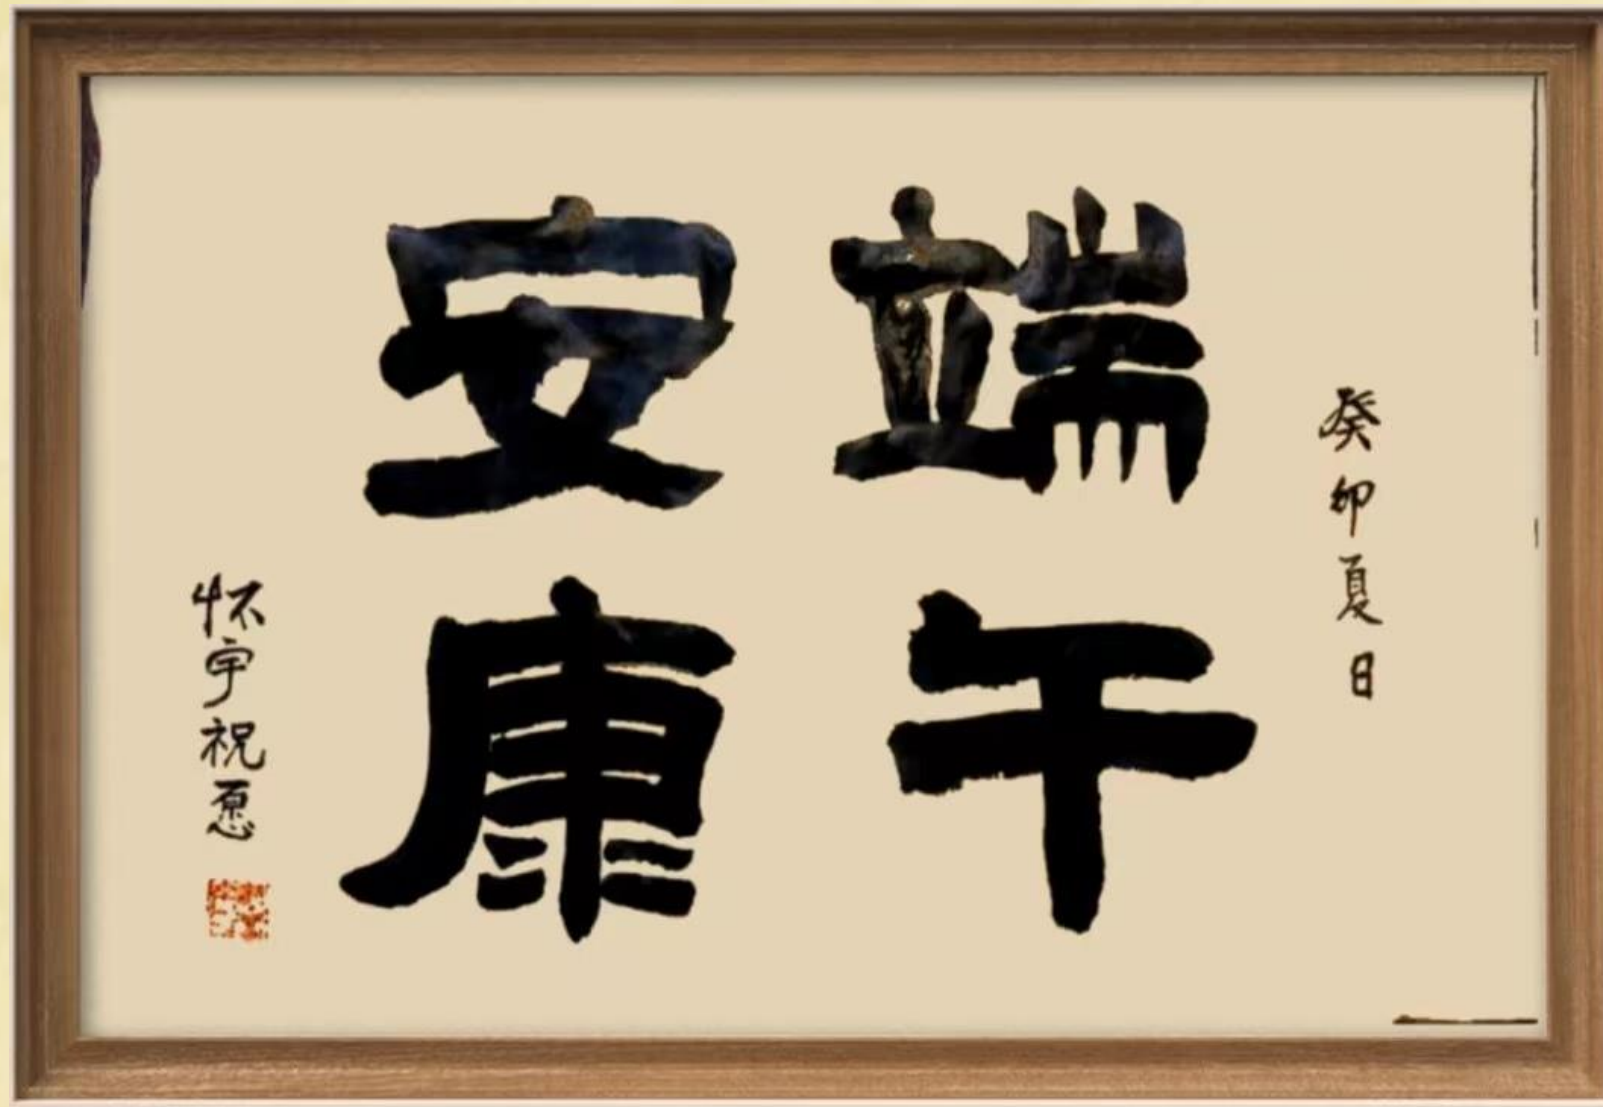 癸卯夏日
端午
安康
怀宇祝愿